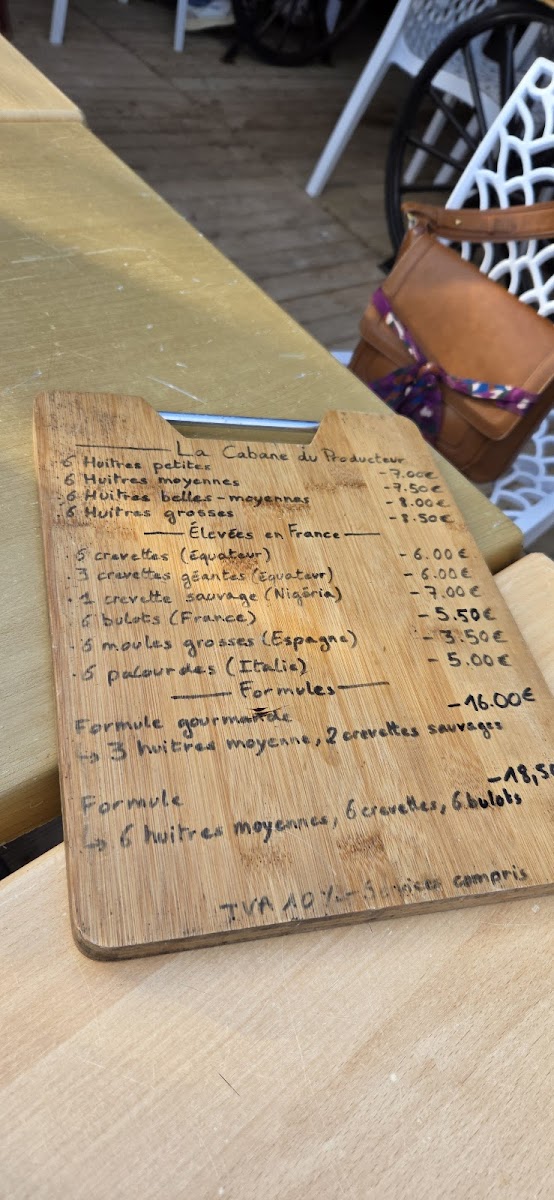 La Cabane du Producteur
. 6 Huîtres petites - 7.00€
. 6 Huîtres moyennes - 7.50€
. 6 Huîtres belles-moyennes - 8.00€
. 6 Huîtres grosses - 8.50€
Élevées en France
. 5 crevettes (Équateur) - 6.00€
. 3 crevettes géantes (Équateur) - 6.00€
. 1 crevette sauvage (Nigéria) - 7.00€
. 6 bulots (France) - 5.50€
. 6 moules grosses (Espagne) - 3.50€
. 6 palourdes (Italie) - 5.00€
Formules
Formule gourmande - 16.00€
↳ 3 huîtres moyenne, 2 crevettes sauvages
Formule - 18,50
↳ 6 huîtres moyennes, 6 crevettes, 6 bulots
TVA 10% - Service compris